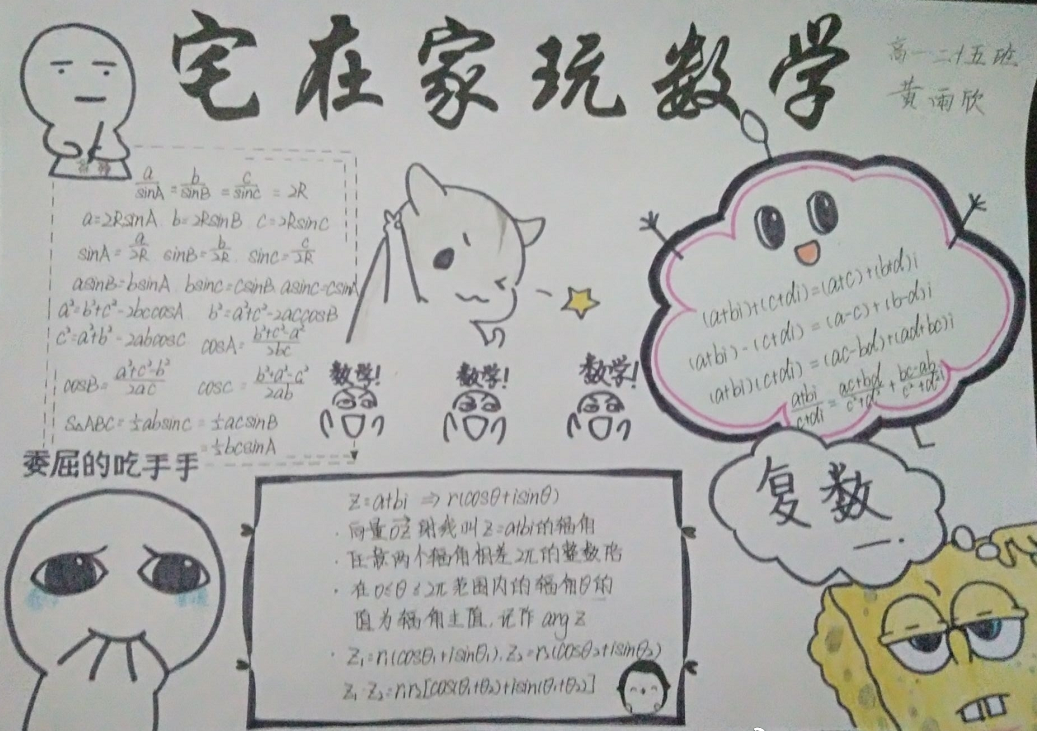 宅在家玩数学
高一二十五班
黄雨欣
a/sinA = b/sinB = c/sinC = 2R
a=2RsinA b=2RsinB c=2RsinC
sinA=a/2R sinB=b/2R sinC=c/2R
asinB=bsinA bsinC=CsinB asinC=csinA
a²=b²+c²-2bccosA b²=a²+c²-2accosB
c²=a²+b²-2abcosC cosA=b²+c²-a²/2bc
cosB=a²+c²-b²/2ac cosC=b²+a²-c²/2ab
S△ABC=½absinC=½acsinB
=½bcsinA
数学!
数学!
数学!
(a+bi)+(c+di)=(a+c)+(b+d)i
(a+bi)-(c+di)=(a-c)+(b-d)i
(a+bi)(c+di)=(ac-bd)+(ad+bc)i
a+bi/c+di=ac+bd/c²+d²+bc-ad/c²+d²i
复数
委屈的吃手手
Z=a+bi ⇒ r(cosθ+isinθ)
Z=a+bi的辐角
·任意两个辐角相差2π的整数倍
·在0≤θ<2π范围内的辐角θ的
值为辐角主值,记作 arg z
·Z₁=r₁(cosθ₁+isinθ₁), Z₂=r₂(cosθ₂+isinθ₂)
Z₁·Z₂=r₁r₂[cos(θ₁+θ₂)+isin(θ₁+θ₂)]